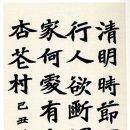 清明時節
行人欲断
家何處有
杏花村
己丑